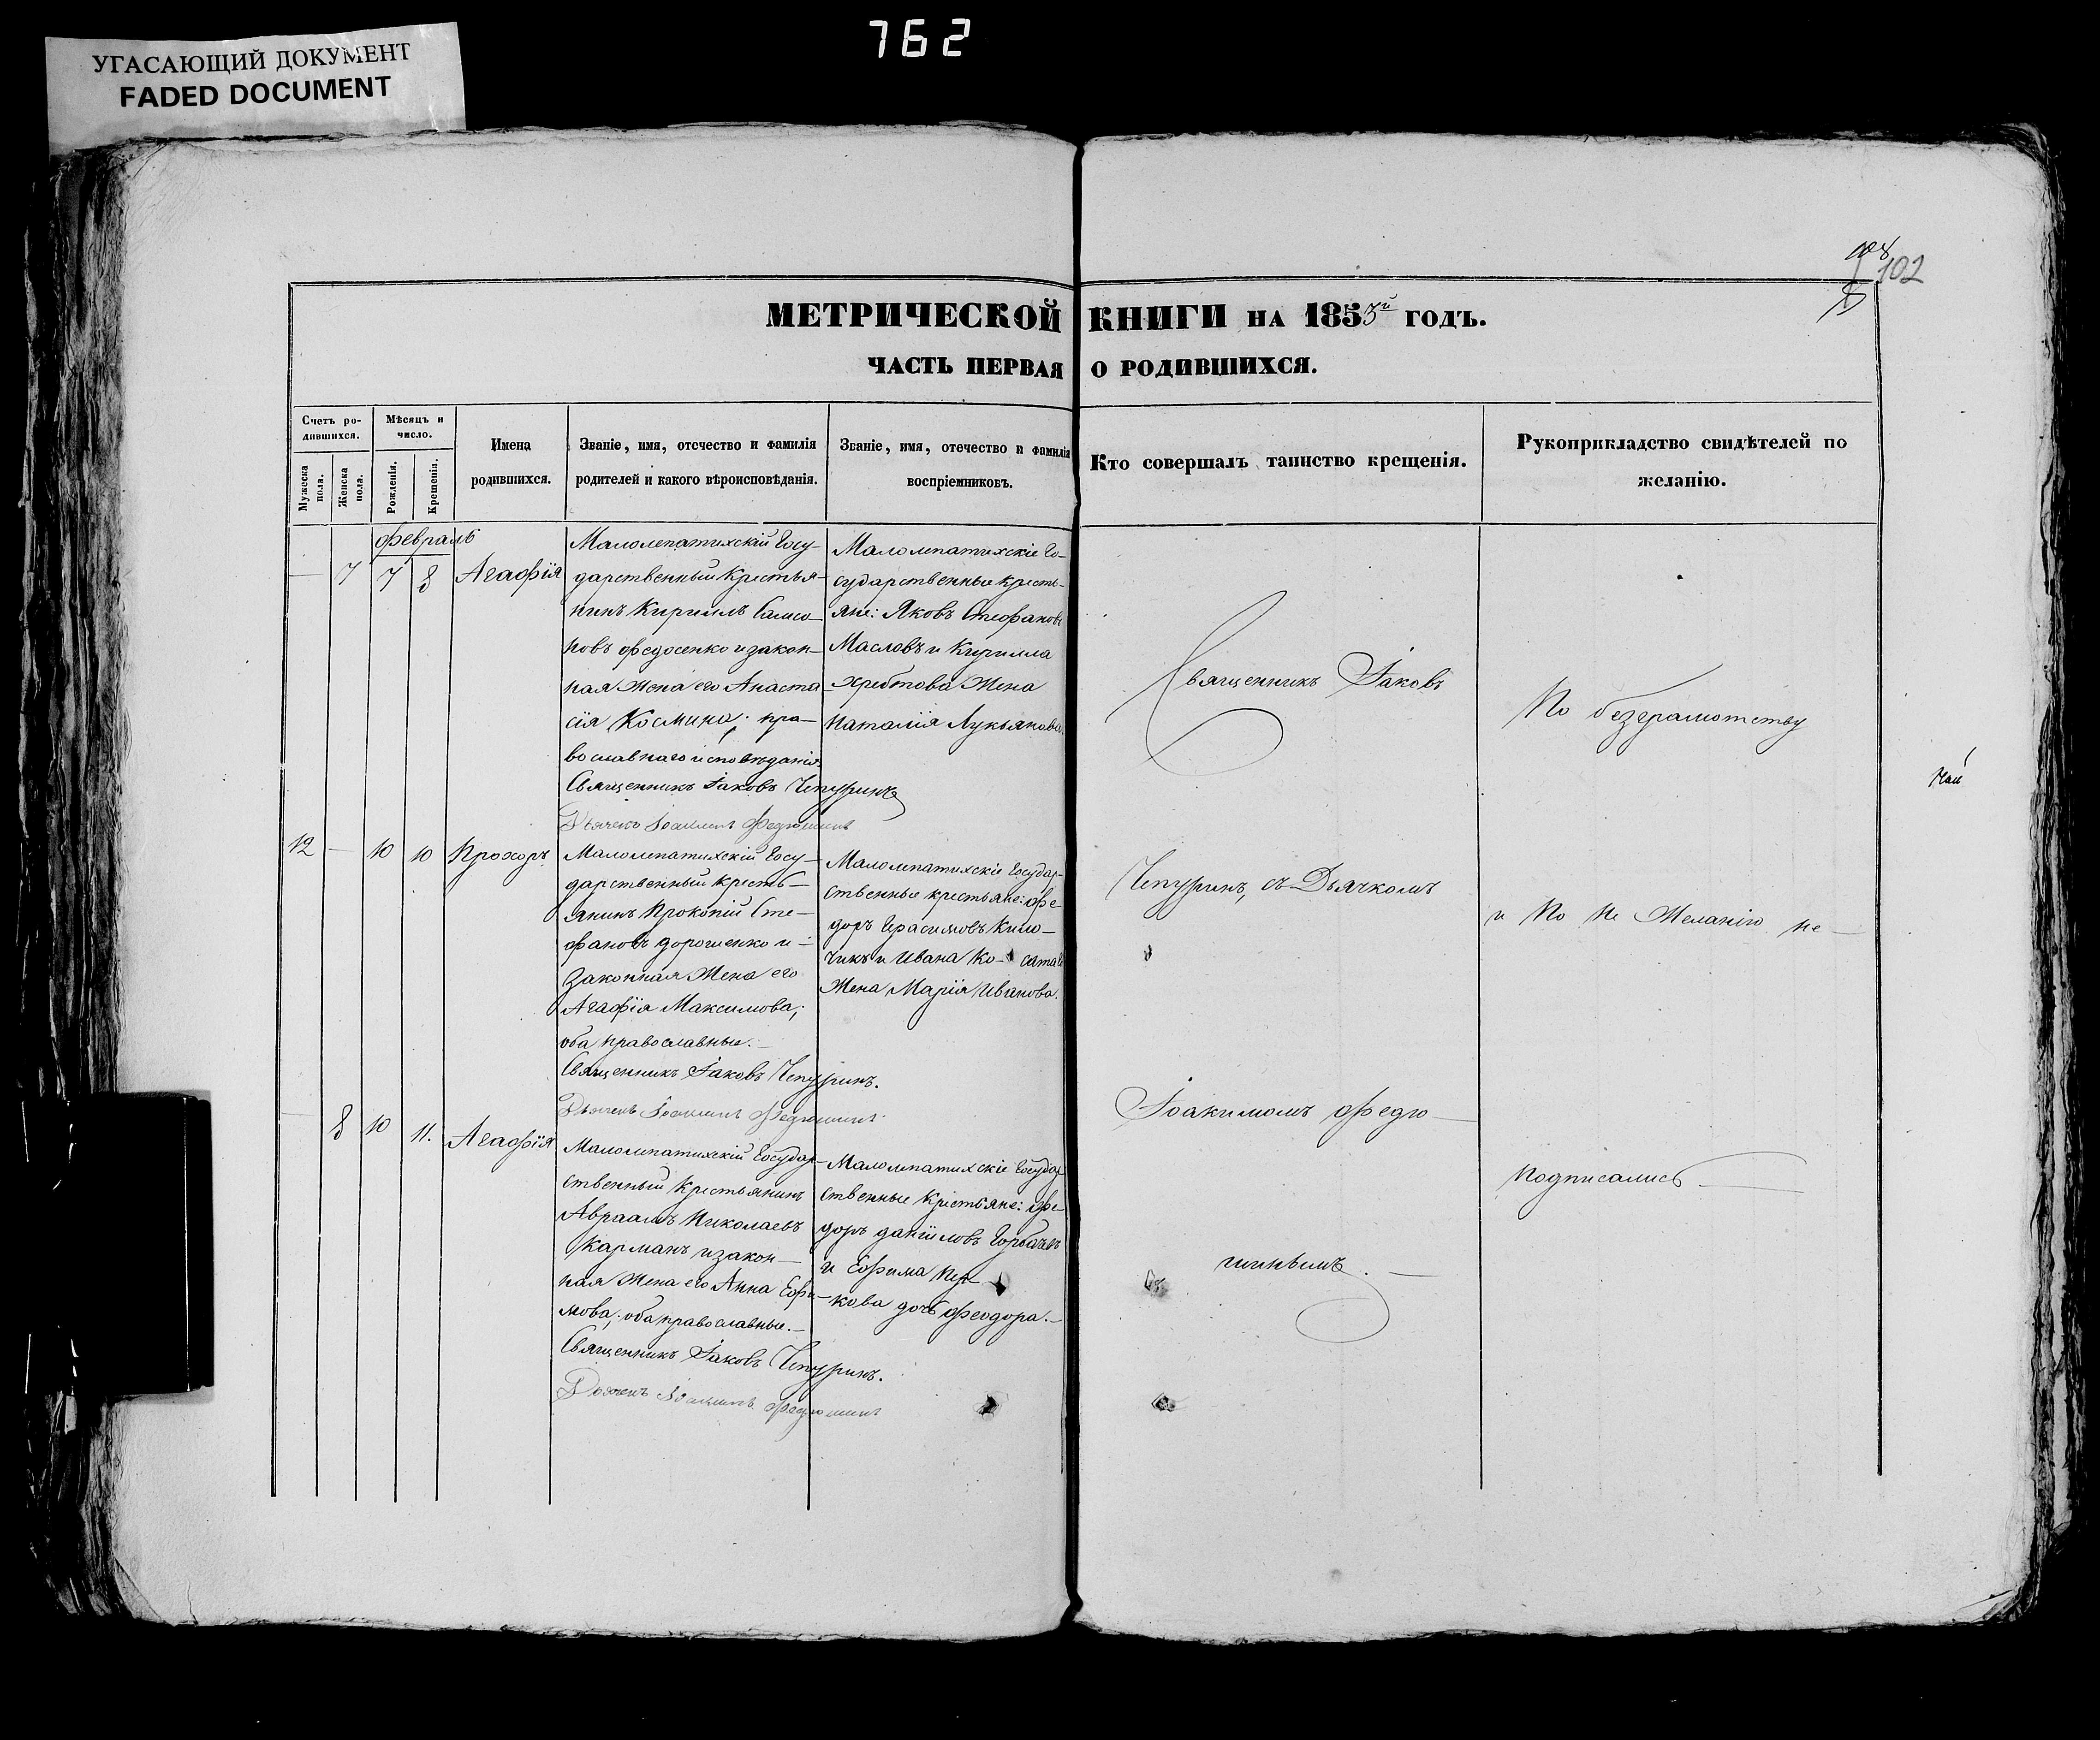 762
УГАСАЮЩИЙ ДОКУМЕНТ
FADED DOCUMENT
102
МЕТРИЧЕСКОЙ КНИГИ НА 1853й ГОДЪ.
ЧАСТЬ ПЕРВАЯ О РОДИВШИХСЯ.
Счетъ ро-
дившихся.
Мужеска
пола.
Женска
пола.
Мѣсяцъ и
число.
Рожденія.
Крещенія.
Имена
родившихся.
Званіе, имя, отечество и фамилія
родителей и какого вѣроисповѣданія.
Званіе, имя, отечество и фамилія
воспріемниковъ.
Кто совершалъ таинство крещенія.
Рукоприкладство свидѣтелей по
желанію.
февраль
— 7 7 8 Агафія
Малолепатихскій Госу-
дарственный Крестья-
нинъ Кириллъ Самсо-
новъ Федосенко и закон-
ная Жена его Анаста-
сія Космина; пра-
вославнаго исповѣданія
Священникъ Іаковъ Чепуринъ
Дьячекъ Іоакимъ Федюшинъ
Малолепатихскіе Го-
сударственные кресть-
яне: Яковъ Стефановъ
Масловъ и Кирилла
Хребтова Жена
Наталія Лукьянова.
12 — 10 10 Прохоръ
Малолепатихскій Госу-
дарственный кресть-
янинъ Прокопій Сте-
фановъ Дорошенко и
законная Жена его
Агафія Максимова;
оба православные.
Священникъ Іаковъ Чепуринъ.
Дьячекъ Іоакимъ Федюшинъ
Малолепатихскіе Государ-
ственные крестьяне: Фе-
доръ Герасимовъ
и Ивана
Жена Марія Иванова.
— 8 10 11. Агафія
Малолепатихскій Государ-
ственный Крестьянинъ
Авраамъ Николаевъ
Карманъ и закон-
ная Жена его Анна Ефи-
мова; оба православные.
Священникъ Іаковъ Чепуринъ.
Дьячекъ Іоакимъ Федюшинъ
Малолепатихскіе Государ-
ственные Крестьяне: Фе-
доръ Даніиловъ Горбачевъ
и Ефима
дочь Феодора.
Священникъ Іаковъ
Чепуринъ, съ Дьячкомъ
Іоакимомъ Федю-
шинымъ.
По безграмотству
и По не Желанію не-
подписались